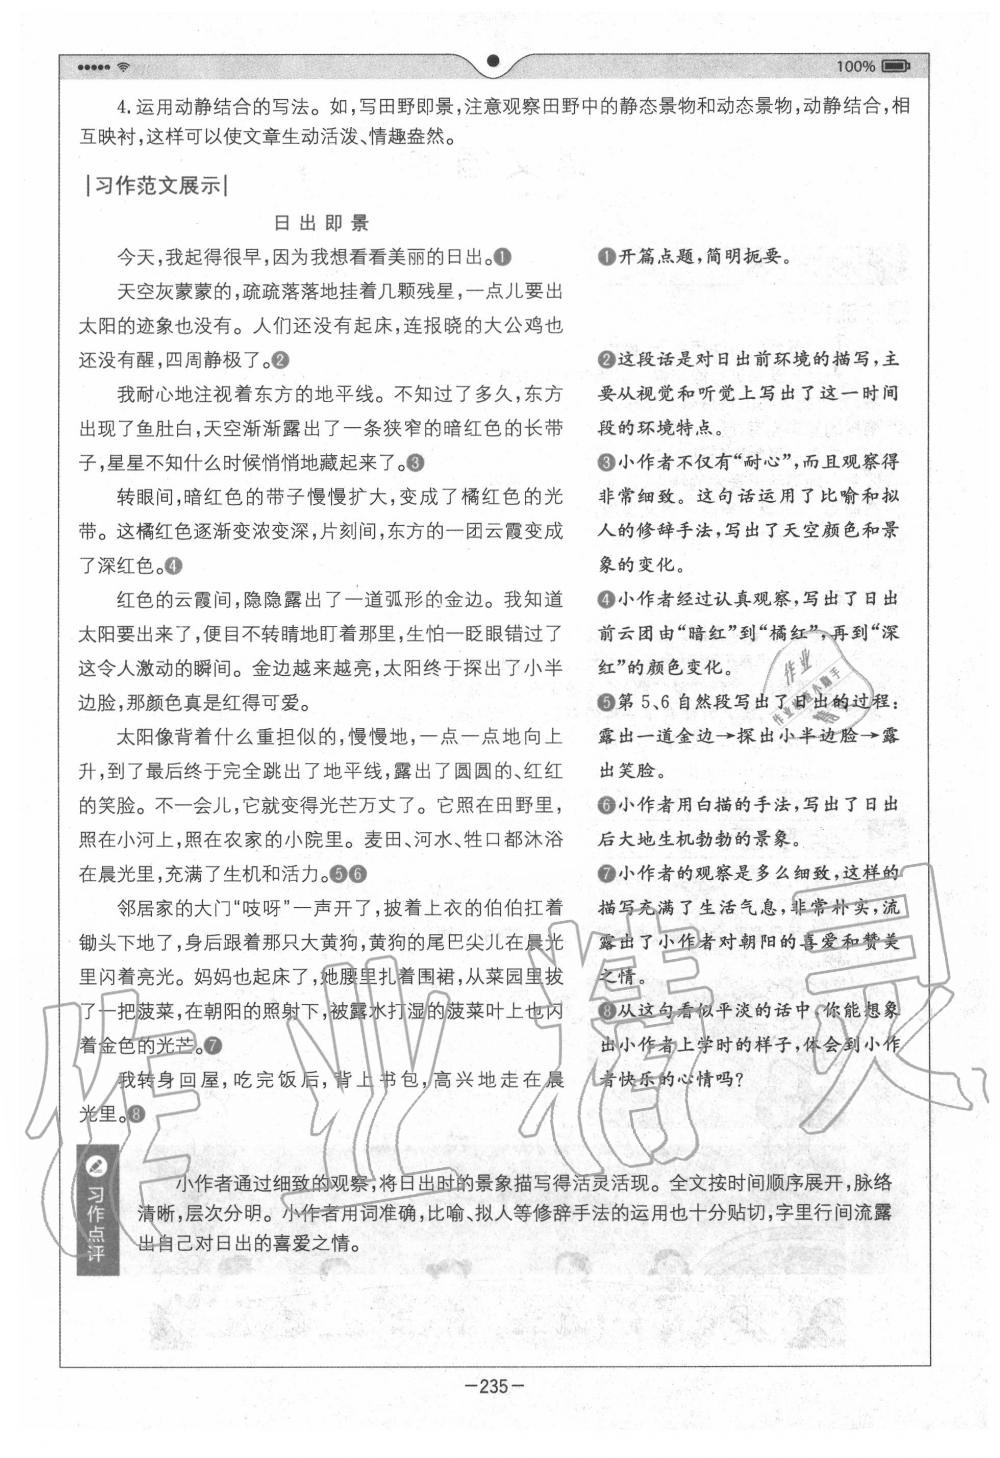 100%
4.运用动静结合的写法。如,写田野即景,注意观察田野中的静态景物和动态景物,动静结合,相
互映衬,这样可以使文章生动活泼、情趣盎然。
习作范文展示
日出即景
今天,我起得很早,因为我想看看美丽的日出。❶
天空灰蒙蒙的,疏疏落落地挂着几颗残星,一点儿要出
太阳的迹象也没有。人们还没有起床,连报晓的大公鸡也
还没有醒,四周静极了。❷
我耐心地注视着东方的地平线。不知过了多久,东方
出现了鱼肚白,天空渐渐露出了一条狭窄的暗红色的长带
子,星星不知什么时候悄悄地藏起来了。❸
转眼间,暗红色的带子慢慢扩大,变成了橘红色的光
带。这橘红色逐渐变浓变深,片刻间,东方的一团云霞变成
了深红色。❹
红色的云霞间,隐隐露出了一道弧形的金边。我知道
太阳要出来了,便目不转睛地盯着那里,生怕一眨眼错过了
这令人激动的瞬间。金边越来越亮,太阳终于探出了小半
边脸,那颜色真是红得可爱。
太阳像背着什么重担似的,慢慢地,一点一点地向上
升,到了最后终于完全跳出了地平线,露出了圆圆的、红红
的笑脸。不一会儿,它就变得光芒万丈了。它照在田野里,
照在小河上,照在农家的小院里。麦田、河水、牲口都沐浴
在晨光里,充满了生机和活力。❺❻
邻居家的大门“吱呀”一声开了,披着上衣的伯伯扛着
锄头下地了,身后跟着那只大黄狗,黄狗的尾巴尖儿在晨光
里闪着亮光。妈妈也起床了,她腰里扎着围裙,从菜园里拔
了一把菠菜,在朝阳的照射下,被露水打湿的菠菜叶上也闪
着金色的光芒。❼
我转身回屋,吃完饭后,背上书包,高兴地走在晨
光里。❽
❶开篇点题,简明扼要。
❷这段话是对日出前环境的描写,主
要从视觉和听觉上写出了这一时间
段的环境特点。
❸小作者不仅有“耐心”,而且观察得
非常细致。这句话运用了比喻和拟
人的修辞手法,写出了天空颜色和景
象的变化。
❹小作者经过认真观察,写出了日出
前云团由“暗红”到“橘红”,再到“深
红”的颜色变化。
❺第5、6自然段写出了日出的过程:
露出一道金边→探出小半边脸→露
出笑脸。
❻小作者用白描的手法,写出了日出
后大地生机勃勃的景象。
❼小作者的观察是多么细致,这样的
描写充满了生活气息,非常朴实,流
露出了小作者对朝阳的喜爱和赞美
之情。
❽从这句看似平淡的话中,你能想象
出小作者上学时的样子,体会到小作
者快乐的心情吗?
习作点评
小作者通过细致的观察,将日出时的景象描写得活灵活现。全文按时间顺序展开,脉络
清晰,层次分明。小作者用词准确,比喻、拟人等修辞手法的运用也十分贴切,字里行间流露
出自己对日出的喜爱之情。
-235-
作业精灵